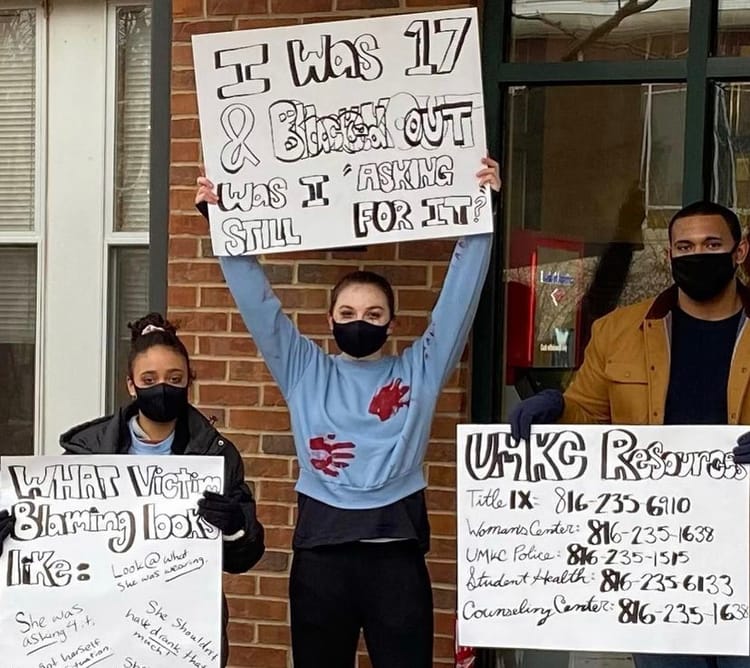 I Was 17
& Blacked OUT
was I "ASKING
STILL FOR IT?
WHAT Victim
Blaming looks
like:
Look@ what
she was wearing.
She was
asking 4 it.
She Shouldn't
have drank that
much!
got herself
situation.
UMKC Resources
Title IX: 816-235-6910
Womans Center: 816-235-1638
UMKC Police: 816-235-1515
Student Health: 816-235-6133
Counseling Center: 816-235-1638